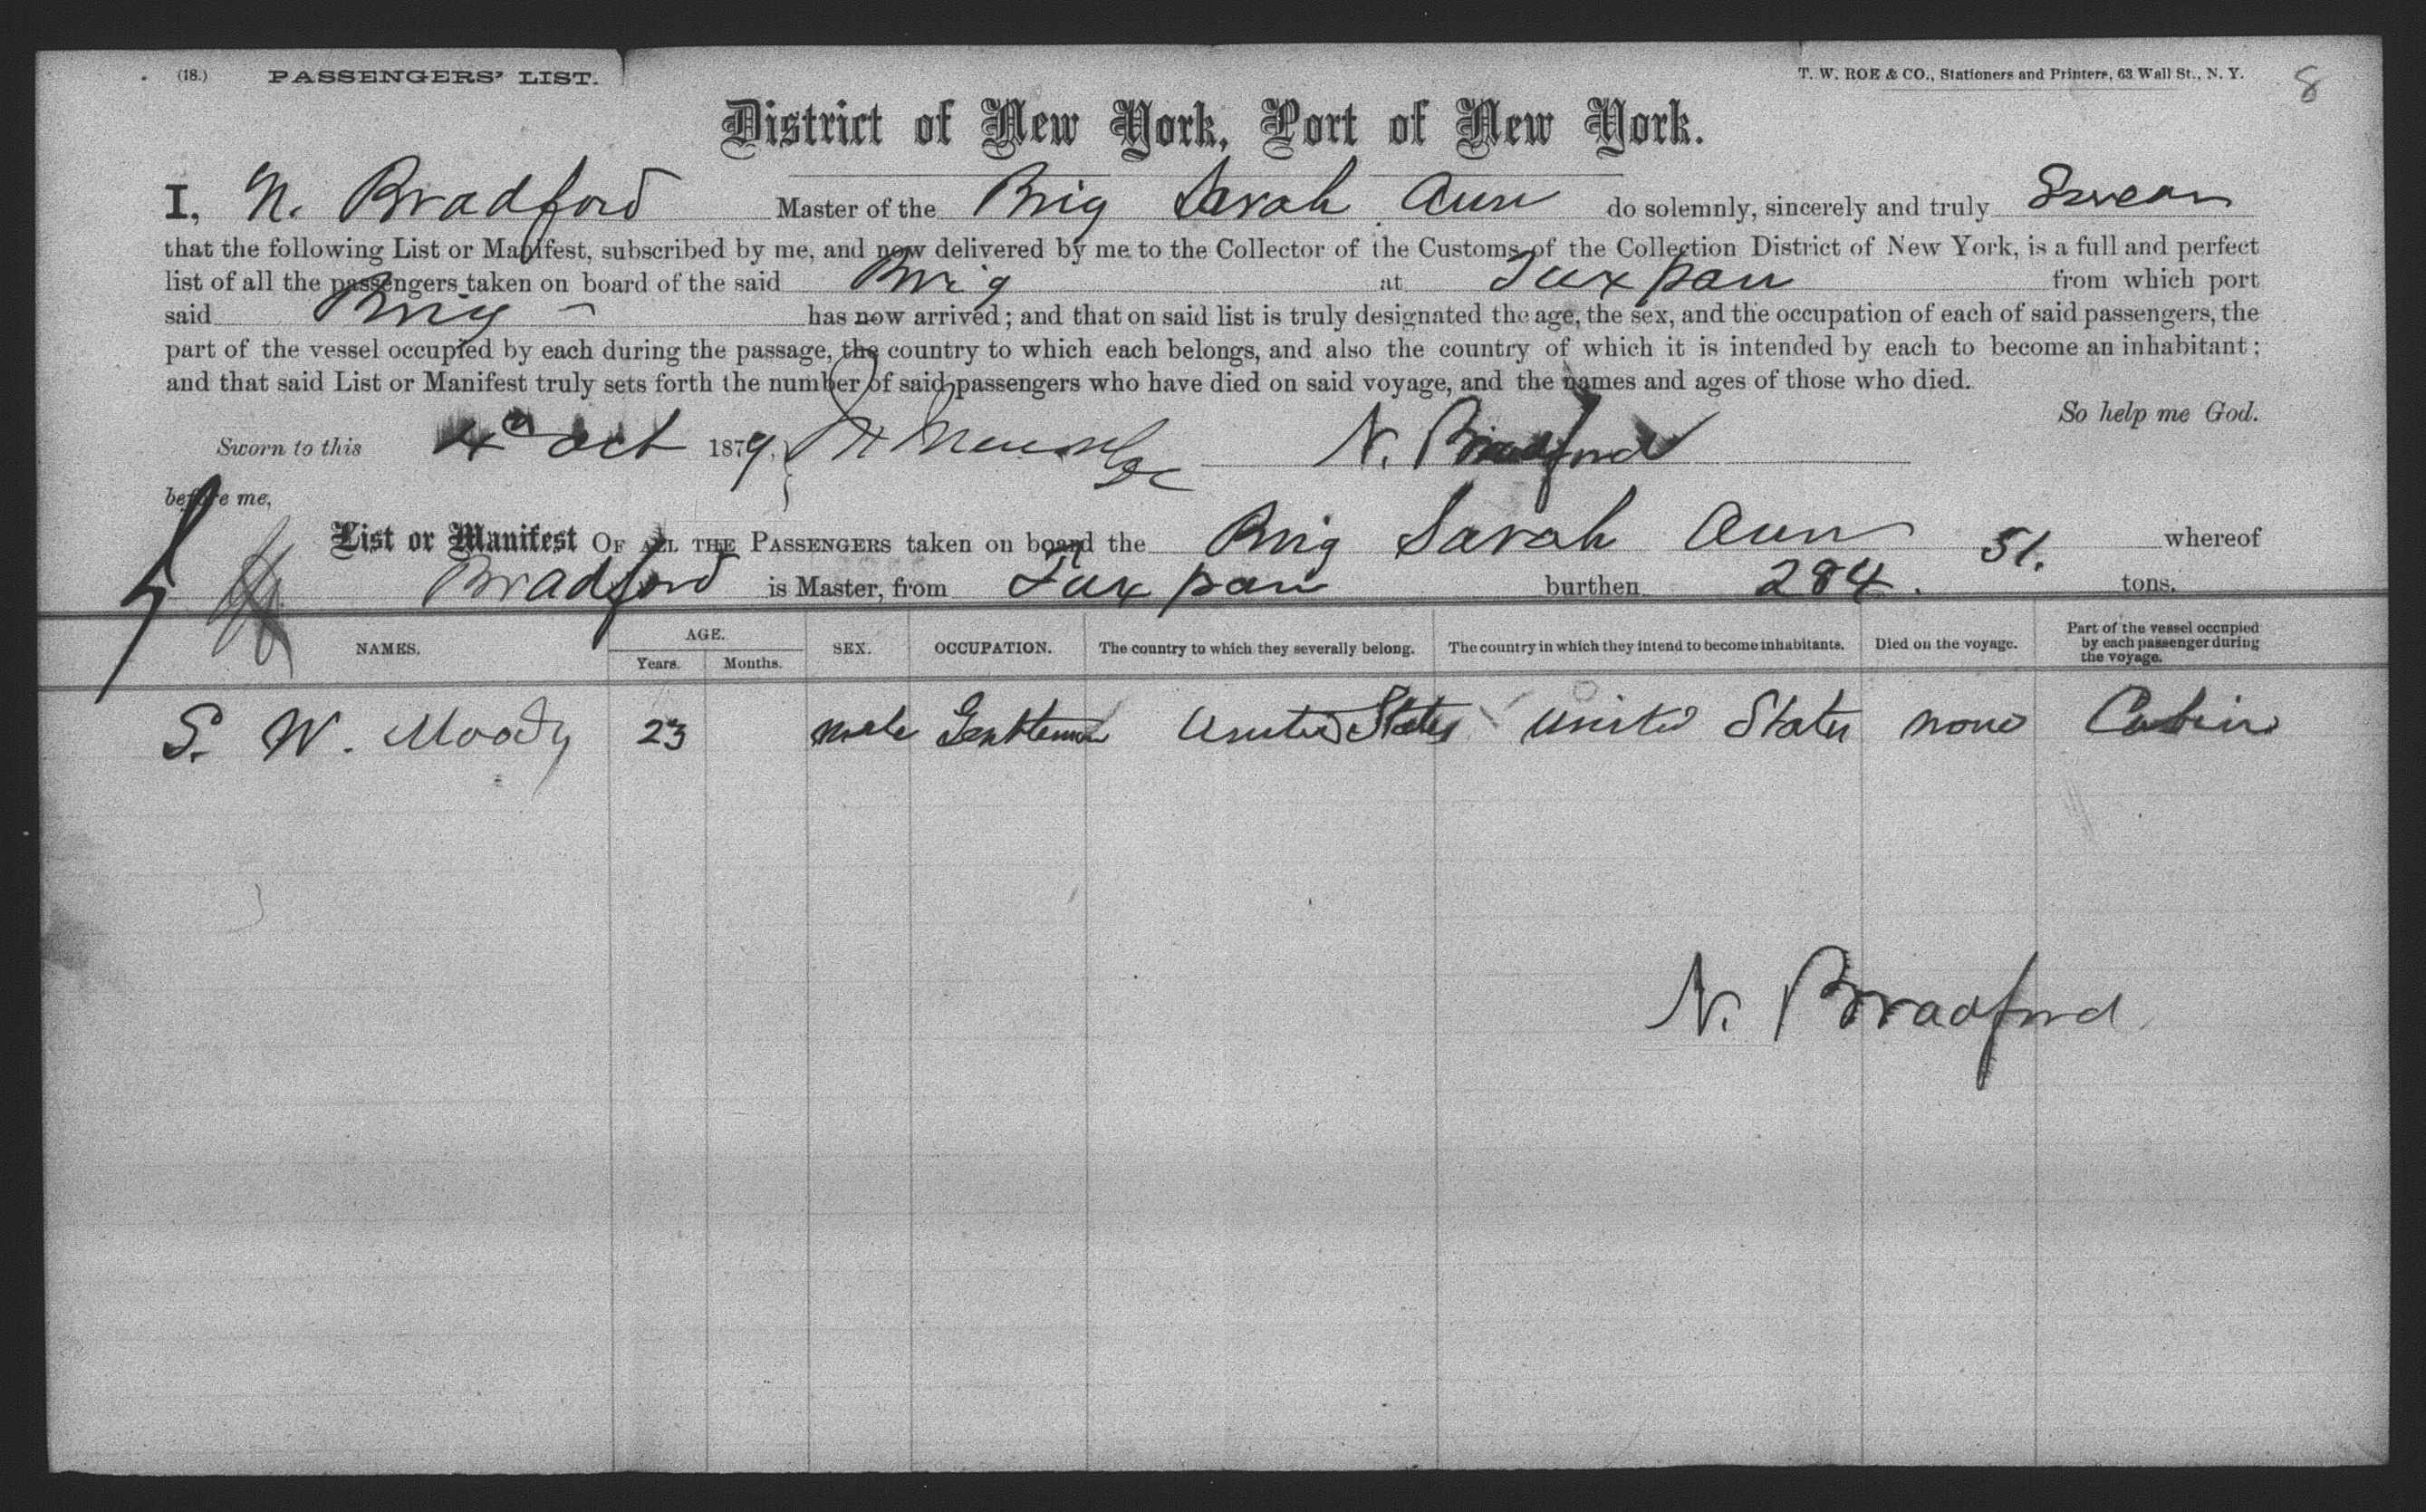 (18.) PASSENGERS' LIST. T. W. ROE & CO., Stationers and Printers, 63 Wall St., N. Y. 8
District of New York, Port of New York.
I, N. Bradford Master of the Brig Sarah Ann do solemnly, sincerely and truly Swear
that the following List or Manifest, subscribed by me, and now delivered by me to the Collector of the Customs of the Collection District of New York, is a full and perfect
list of all the passengers taken on board of the said Brig at Tuxpan from which port
said Brig has now arrived; and that on said list is truly designated the age, the sex, and the occupation of each of said passengers, the
part of the vessel occupied by each during the passage, the country to which each belongs, and also the country of which it is intended by each to become an inhabitant;
and that said List or Manifest truly sets forth the number of said passengers who have died on said voyage, and the names and ages of those who died.
So help me God.
Sworn to this 4 Oct 1879. N. Bradford
before me,
List or Manifest OF ALL THE PASSENGERS taken on board the Brig Sarah Ann whereof
Bradford is Master, from Tuxpan burthen 284. 51. tons.
NAMES. AGE. Years. Months. SEX. OCCUPATION. The country to which they severally belong. The country in which they intend to become inhabitants. Died on the voyage. Part of the vessel occupied by each passenger during the voyage.
S. W. Moody 23 male Gentleman United States United States none Cabin
N. Bradford